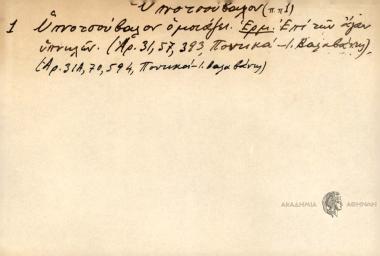 Ὑπνοτσούβαλον (ππξ)
1 Ὑπνοτσούβαλον ὁμοιάζει. Ἑρμ. Ἐπὶ τῶν ἄγαν
ὑπνηλῶν. (Ἀρ. 31, 57, 393, Ποντικά - Ι. Βαλαβάνης)
(Ἀρ. 31Α, 70, 594, Ποντικά - Ι. Βαλαβάνης)
ΑΚΑΔΗΜΙΑ ΑΘΗΝΩΝ